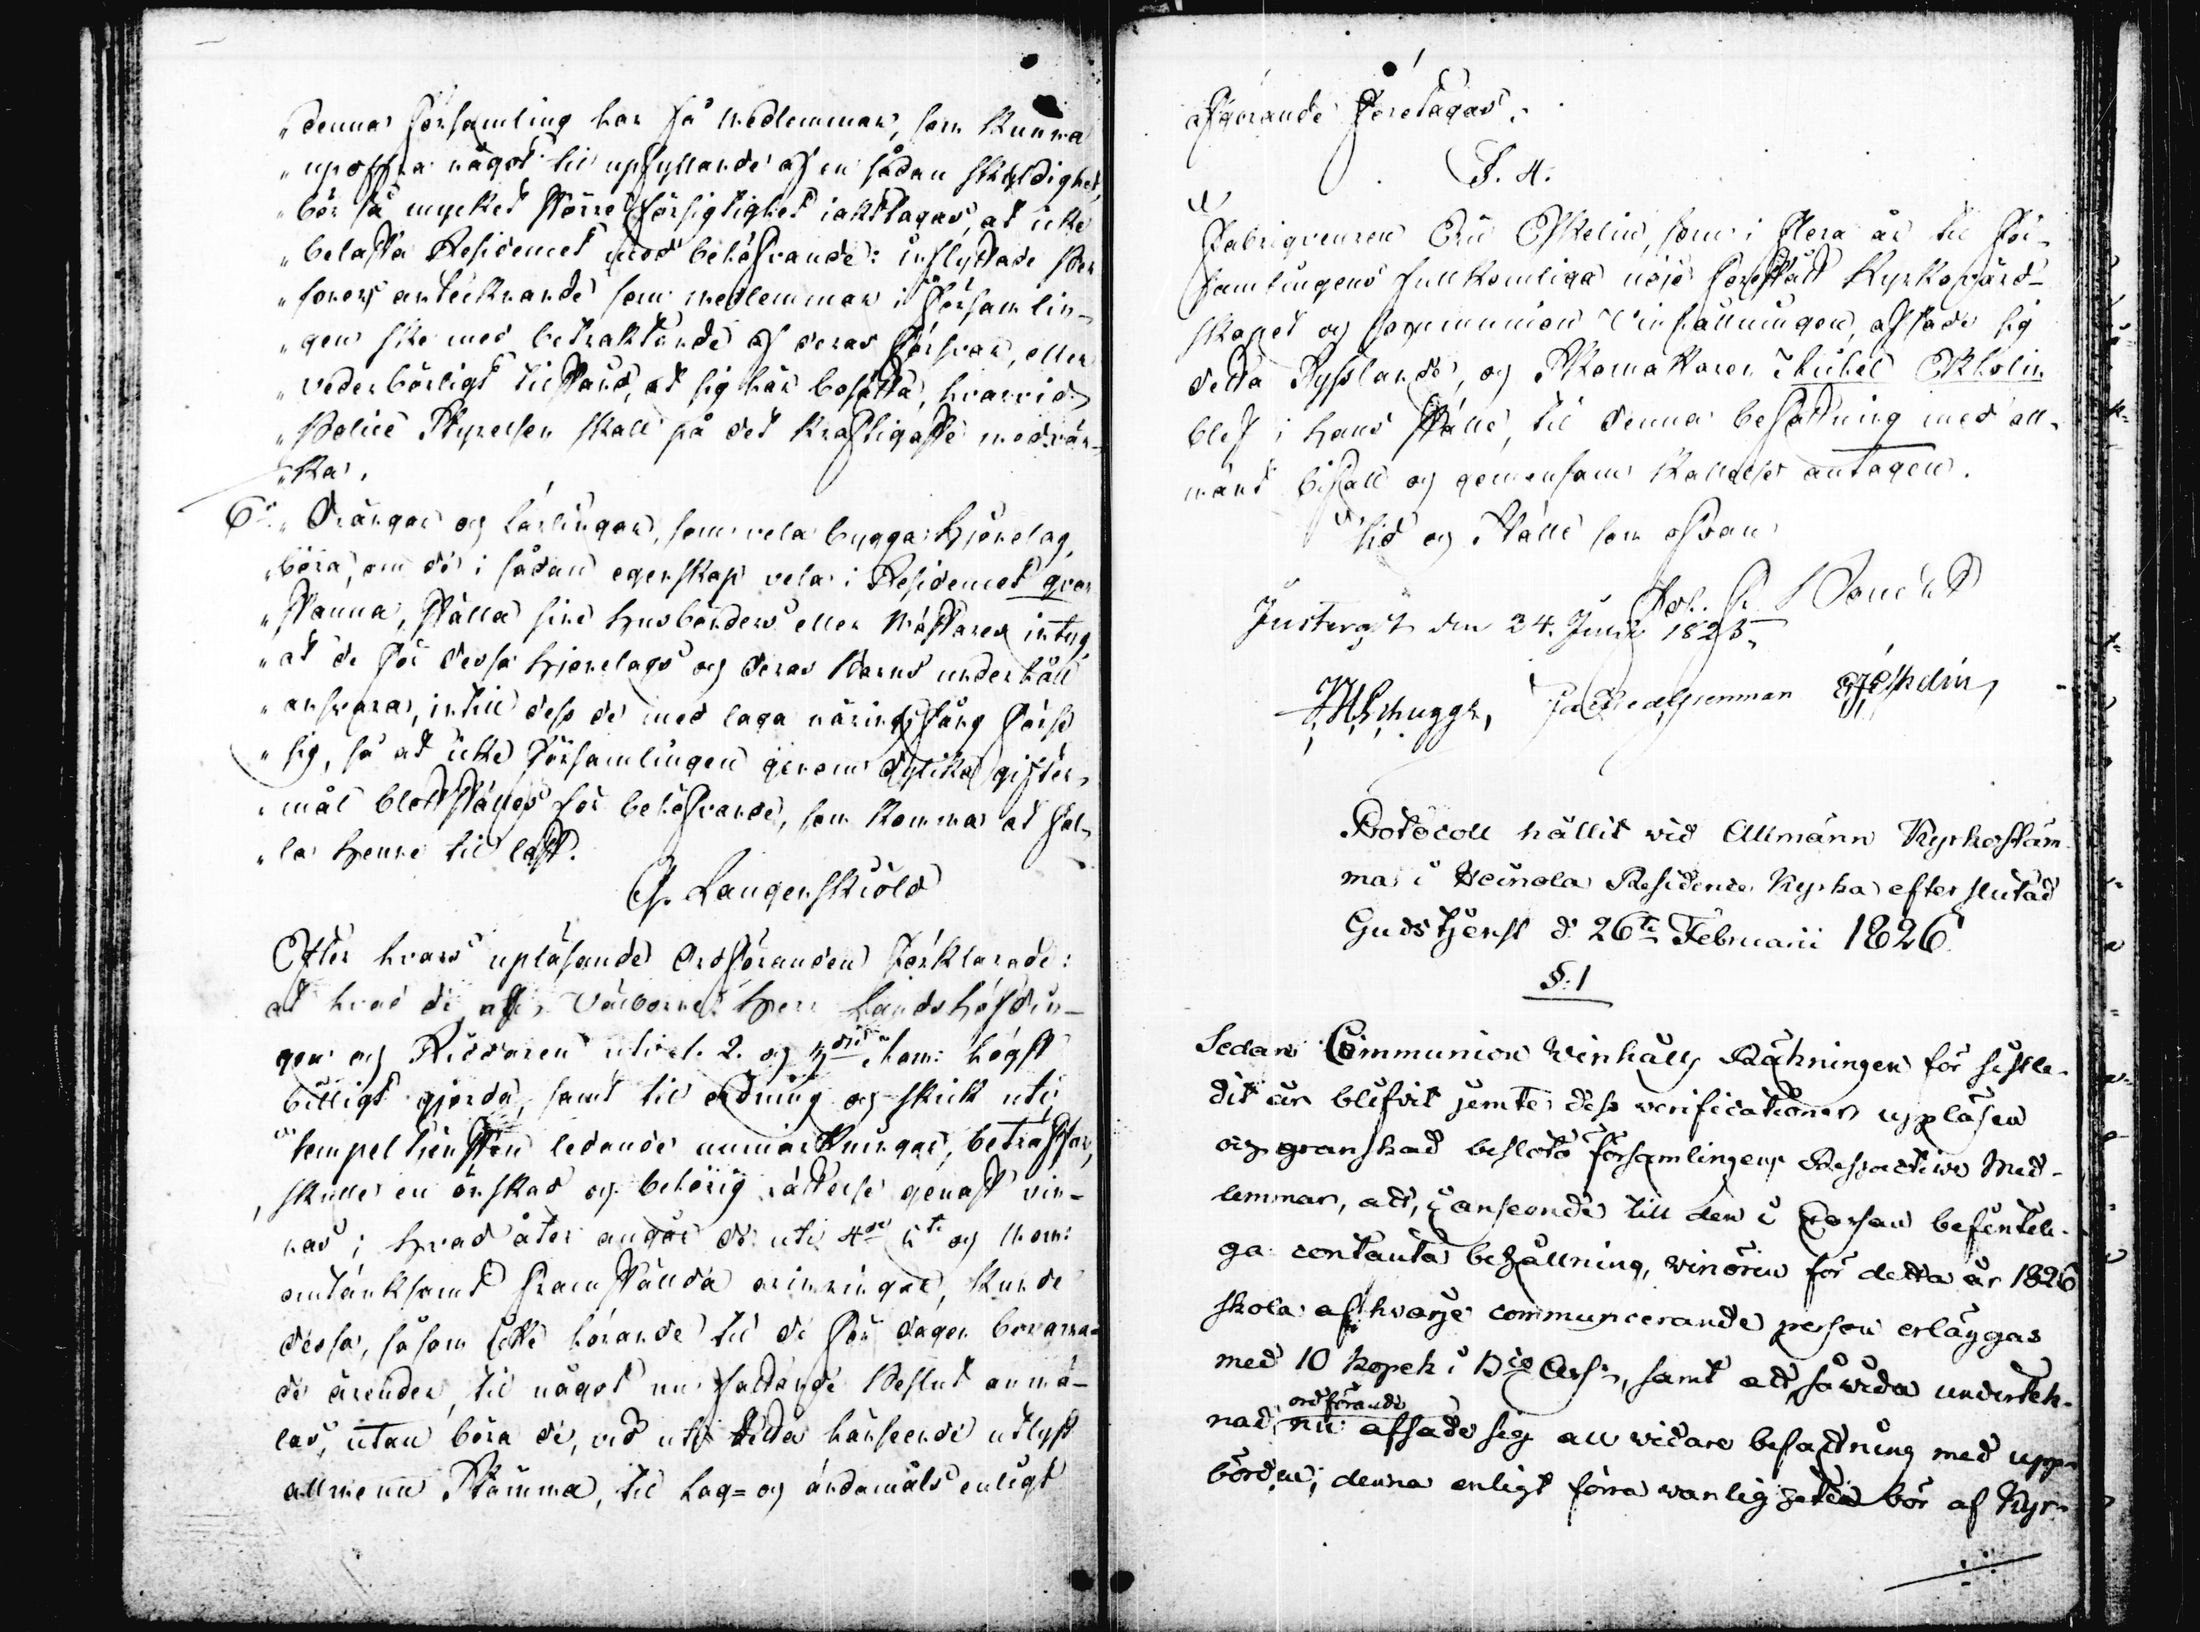 „denna församling har få medlemmar, som kunna
„upoffra något til upfyllande af en sådan skyldighet,
„bör så mycket större försigtighet iakttagas, at icke
„belasta Residencet med behöfvande: inflyttade Per
„soners antecknande som medlemmar i Församlin-
„gen ske med betraktande af deras Försvar, eller
„vederbörligt tilstånd, at sig här bosätta, hvarvid
„Police Styrelsen skall på det kraftigaste medvär-
„ka.
6:o „Drängar og Lärlingar, som vela bygga Hjonelag,
„böra, om de i sådan egenskap vela i Residencet qvar
„stanna, ställa sine Husbönders eller Mästares intyg,
„at de för dessa Hjonelags og deras Barns underhåll
„ansvara, intill dess de med laga näringsfång förse
„sig, så at icke Församlingen genom dylika gifter-
„mål blottställes för behöfvande, som komma at fal-
„la henne til last.
G. Langenskiöld
Efter hvars upläsande Ordföranden förklarade:
at hvad de af Välborne Herr Landshöfdin-
gen og Riddaren uti 1. 2. og 3die mom: högst
billigt gjorda, samt til ordning og skick uti
tempeltiensten ledande anmärkningar, beträffar,
skulle en önskad og behörig rättelse genast vin-
nas; hvad åter angår de uti 4de 5te og mom:
omtänksamt framstälda erinringar, kunde
dessa, såsom icke hörande til de för dagen bevarna-
de ärender, til något nu fattande Beslut anmä-
las, utan böra de, vid uti detta hänseende utlyst
allmenn Stämma, til Lag= og ändamåls enligt
afgörande Företagas.
§. 4.
Fabriqveuren Eric Eskelin, som i flera år til För-
samlingens fullkomliga nöje förestått Kyrkovärd-
skapet og Communion Vinhållningen, afsade sig
detta Sysslande, og Skomakaren Michel Ekholin
blef i hans ställe, til denna befattning med all-
mänt bifall og gemensam kallelse antagen.
Tid og Ställe som ofvan
Joh. G.
Justerat den 24. Junii 1825.
Protocoll hållit vid Allmänn Kyrkostäm
ma i Heinola Residence Kyrka efter slutad
Gudstjenst d 26te Februarii 1826
§. 1
Sedan Communion Winhålls Räkningen för sistle-
dit år blifvit jemte dess verificationer uppläsen
och granskad beslöto församlingens Respective Med-
lemmar, att, i anseende till den i Cassan befintel.
ga contanta behållning, vinören för detta år 1826
skola af hvarje communicerande person erläggas
med 10 kopek i Bco Ass:r, samt att såvida underteck-
nad, ordförande nu afsade sig all vidare befattning med upp-
börden, denna enligt förra vanligheten bör af Kyr-